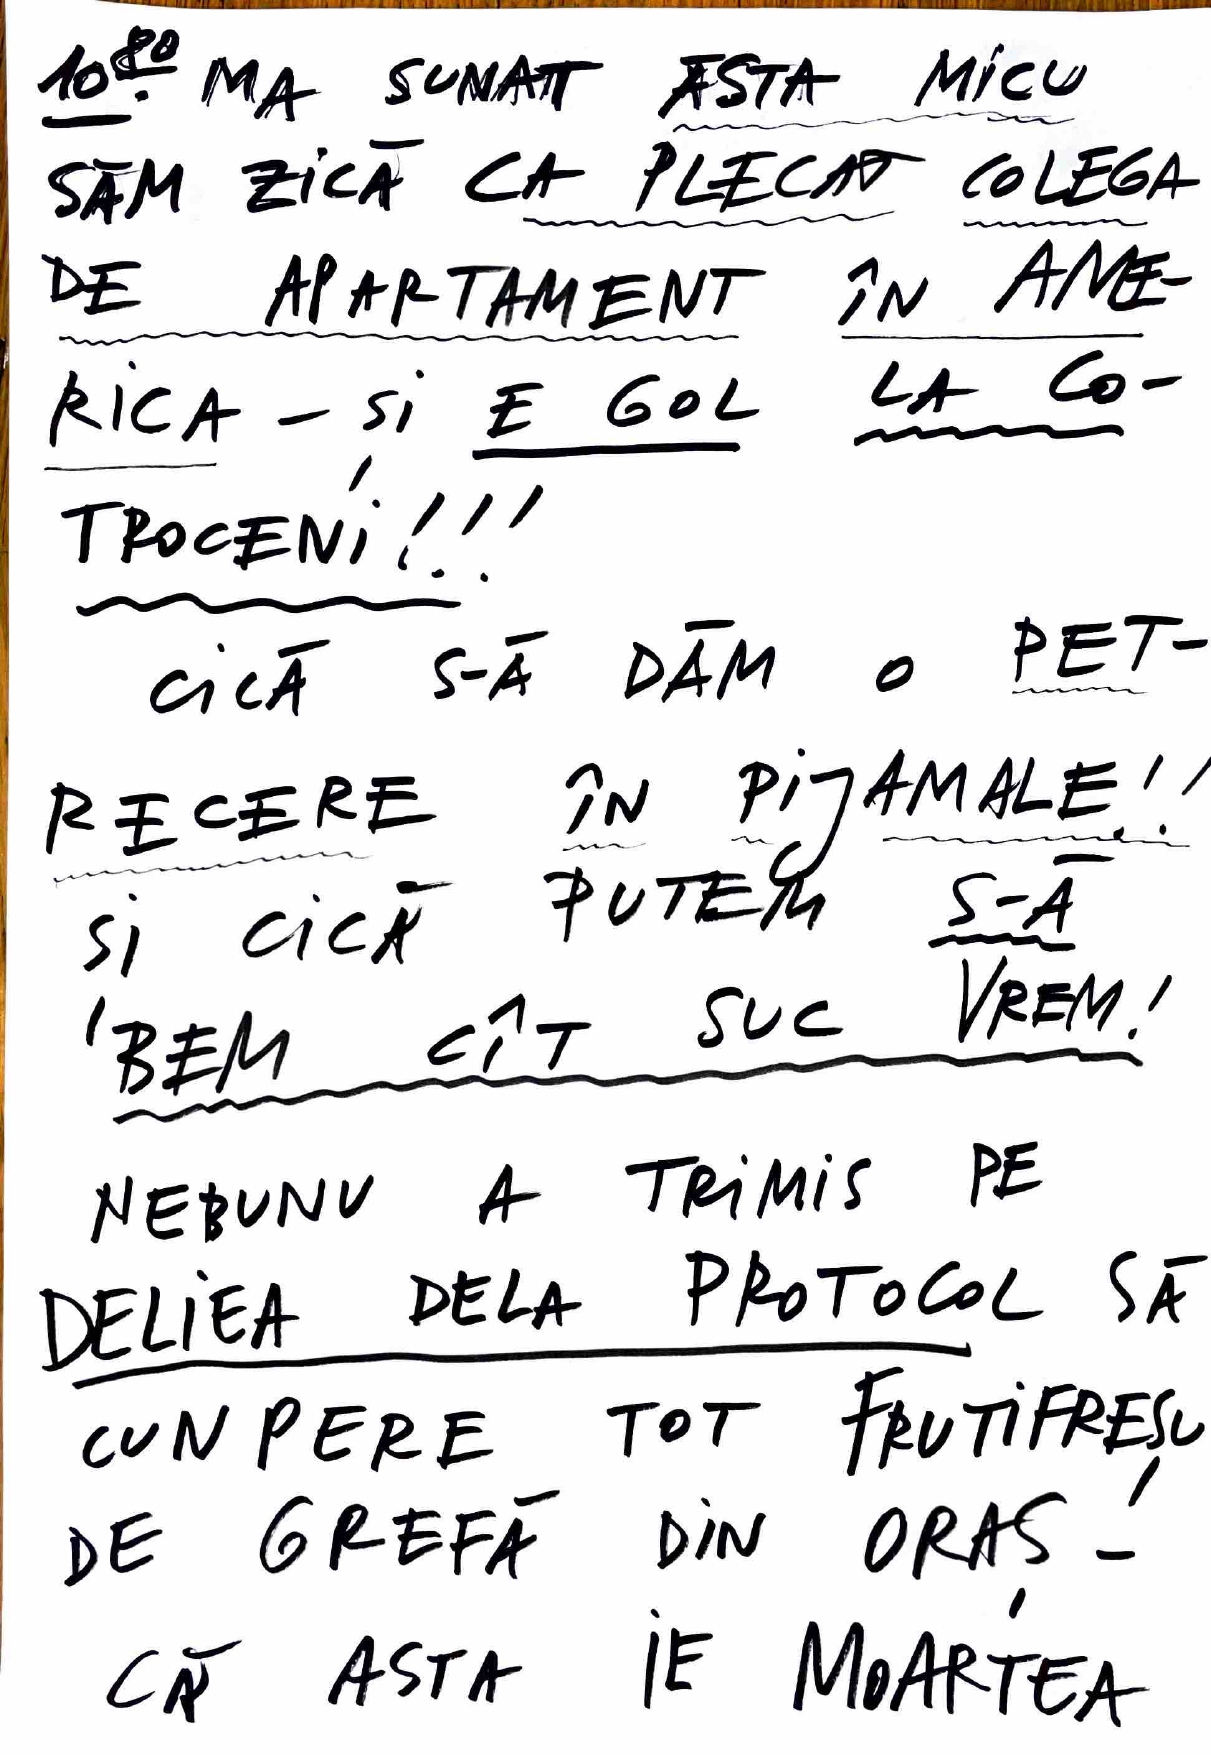 10⁸⁰ MA SUNATT ASTA MiCU
SĂM ZiCĂ CA PLECAT COLEGA
DE APARTAMENT ÎN AME-
RiCA – Și E GOL LA CO-
TROCENi!!!
CiCĂ S-Ă DĂM O PET-
RECERE ÎN PiJAMALE!!
Și CiCĂ PUTEM S-Ă
BEM CÎT SUC VREM!
NEBUNU A TRiMiS PE
DELiEA DELA PROTOCOL SĂ
CUNPERE TOT FRUTiFREȘU
DE GREFĂ DiN ORAȘ –
CĂ ASTA iE MOARTEA